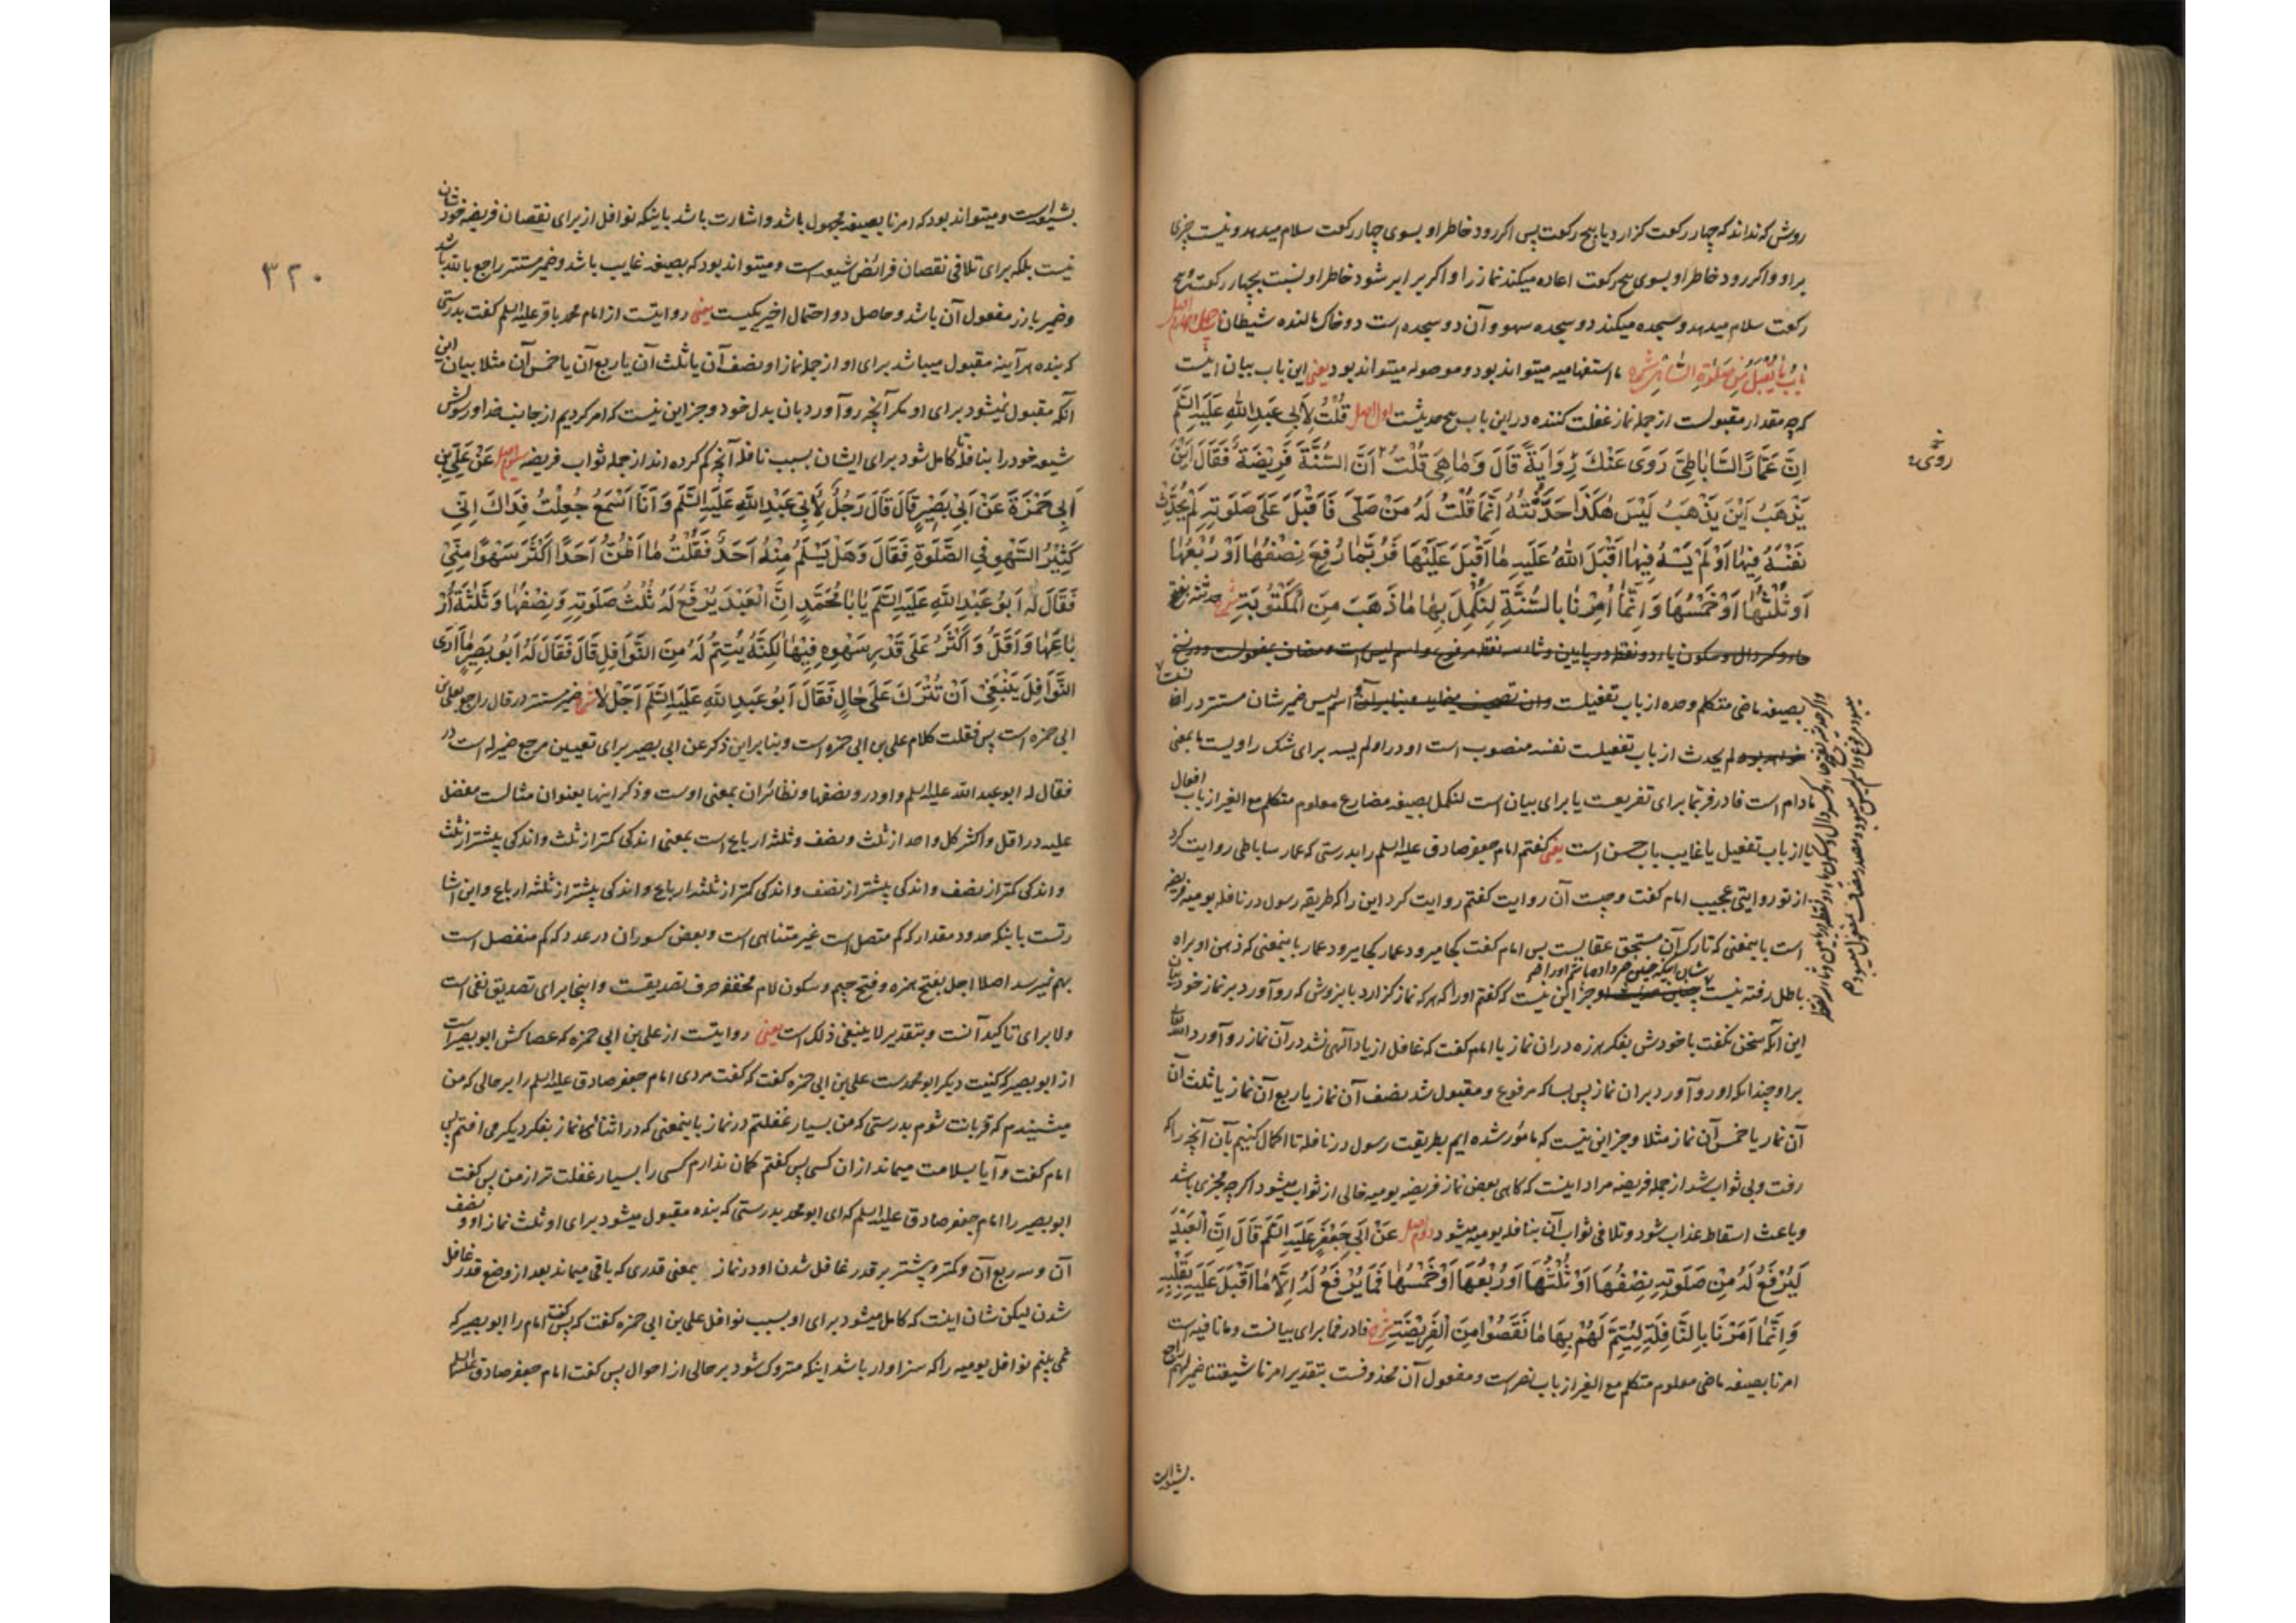 روش که نداند که چهار رکعت گزارد یا پنج رکعت پس اگر رود خاطر او بسوی چهار رکعت سلام میدهد و نیست چیزی
بر او و اگر رود خاطر او بسوی پنج رکعت اعاده میکند نماز را و اگر برابر شود خاطر او نسبت بچهار رکعت و پنج
رکعت سلام میدهد و سجده میکند دو سجده سهو و آن دو سجده است دو خاک مالنده شیطان
باب ما یقبل من صلوة الساهی شرح ما استفهامیه میتواند بود و موصوله میتواند بود یعنی این باب بیان اینست
که چه مقدار مقبولست از جمله نماز غفلت کننده در این باب پنج حدیثست اول اصل قُلْتُ لِأَبِی عَبْدِ اللَّهِ عَلَیْهِ السَّلَم
اِنَّ عَمَّارَ السَّابَاطِیَّ رَوَی عَنْکَ رِوَایَةً قَالَ وَمَا هِیَ قُلْتُ اَنَّ السُّنَّةَ فَرِیضَةٌ فَقَالَ اَیْنَ
یَذْهَبُ اَیْنَ یَذْهَبُ لَیْسَ هٰکَذَا حَدَّثْتُهُ اِنَّمَا قُلْتُ لَهُ مَنْ صَلَّی فَاَقْبَلَ عَلَی صَلَوتِهِ لَمْ یُحَدِّثْ
نَفْسَهُ فِیهَا اَوْ لَمْ یَسْهُ فِیهَا اَقْبَلَ اللّٰهُ عَلَیْهِ مَا اَقْبَلَ عَلَیْهَا فَرُبَّمَا رُفِعَ نِصْفُهَا اَوْ رُبْعُهَا
اَوْ ثُلْثُهَا اَوْ خُمْسُهَا وَ اِنَّمَا اُمِرْنَا بِالسُّنَّةِ لِنُکْمِلَ بِهَا مَا ذَهَبَ مِنَ الْمَکْتُوبَةِ شرح حدثته بفتح
حاء و کسر دال و سکون یاء دو نقطه در پایین و ثاء سه نقطه مرفوع و اسم لیس است و مضاف بمفعولست و در نسخ
بصیغه ماضی متکلم وحده از باب تفعیلست و اسم لیس ضمیر شان مستتر در
لم یحدث از باب تفعیلست نفسه منصوب است او در او لم یسه برای شک راویست ما بمعنی
مادام است فا در فربما برای تفریعست یا برای بیان است لنکمل بصیغه مضارع معلوم متکلم مع الغیر از باب افعال
یا از باب تفعیل یا غایب باب حسن است یعنی گفتم امام جعفر صادق علیه السلم را بدرستی که عمار ساباطی روایت کرد
از تو روایتی عجیب امام گفت و چیست آن روایت گفتم روایت کرد این را که طریقه رسول در نافله یومیه فریضه
است باینمعنی که تارک آن مستحق عقابست پس امام گفت کجا میرود عمار کجا میرود عمار باینمعنی که ذهن او براه
باطل رفته نیست شان اینکه چنین خبر داده باشم او را جز این نیست که گفتم او را که هر که نماز گزارد باینروش که رو آورد بر نماز خود
این آنکه سخن نگفت با خودش بفکر هرزه در آن نماز یا امام گفت که غافل از یاد الهی نشد در آن نماز رو آورد الله تعالی
بر او چندانکه او رو آورد بر آن نماز پس بسا که مرفوع و مقبول شد نصف آن نماز یا ربع آن نماز یا ثلث آن
آن نماز یا خمس آن نماز مثلا و جز این نیست که مامور شده ایم بطریقت رسول در نافله تا اکمال کنیم بآن آنچه را که
رفت و بی ثواب شد از جمله فریضه مراد اینست که گاهی بعض نماز فریضه یومیه خالی از ثواب میشود اگر چه مجزی باشد
و باعث اسقاط عذاب شود و تلافی ثواب آن بنافله یومیه میشود دوم اصل عَنْ اَبِی جَعْفَرٍ عَلَیْهِ السَّلَم قَالَ اِنَّ الْعَبْدَ
لَیُرْفَعُ لَهُ مِنْ صَلَوتِهِ نِصْفُهَا اَوْ ثُلْثُهَا اَوْ رُبْعُهَا اَوْ خُمْسُهَا فَمَا یُرْفَعُ لَهُ اِلَّا مَا اَقْبَلَ عَلَیْهِ بِقَلْبِهِ
وَ اِنَّمَا اَمَرْنَا بِالنَّافِلَةِ لِیُتِمَّ لَهُمْ بِهَا مَا نَقَصُوا مِنَ الْفَرِیضَةِ شرح فا در فما برای بیانست و ما نافیه است
امرنا بصیغه ماضی معلوم متکلم مع الغیر از باب نصر است و مفعول آن محذوفست بتقدیر امرنا شیعتنا ضمیر لهم راجع
بشیعه است
۳۲۰
بشیعه است و میتواند بود که امرنا بصیغه مجهول باشد و اشارت باشد باینکه نوافل از برای نقصان فریضه خودشان
نیست بلکه برای تلافی نقصان فرائض شیعه است و میتواند بود که بصیغه غایب باشد و ضمیر مستتر راجع بالله باشد
و ضمیر بارز مفعول آن باشد و حاصل دو احتمال اخیر یکیست یعنی روایتست از امام محمد باقر علیه السلم گفت بدرستی
که بنده هر آینه مقبول میباشد برای او از جمله نماز او نصف آن یا ثلث آن یا ربع آن یا خمس آن مثلا بیان این
آنکه مقبول نمیشود برای او مگر آنچه رو آورد بآن بدل خود و جز این نیست که امر کردیم از جانب خدا و رسولش
شیعه خود را بنافله تا کامل شود برای ایشان بسبب نافله آنچه کم کرده اند از جمله ثواب فریضه سیوم اصل عَنْ عَلِیِّ بْنِ
اَبِی حَمْزَةَ عَنْ اَبِی بَصِیرٍ قَالَ قَالَ رَجُلٌ لِأَبِی عَبْدِ اللَّهِ عَلَیْهِ السَّلَم وَ اَنَا اَسْمَعُ جُعِلْتُ فِدَاکَ اِنِّی
کَثِیرُ السَّهْوِ فِی الصَّلَوةِ فَقَالَ وَ هَلْ یَسْلَمُ مِنْهُ اَحَدٌ فَقُلْتُ مَا اَظُنُّ اَحَدًا اَکْثَرَ سَهْوًا مِنِّی
فَقَالَ لَهُ اَبُو عَبْدِ اللَّهِ عَلَیْهِ السَّلَم یَا بَا مُحَمَّدٍ اِنَّ الْعَبْدَ یُرْفَعُ لَهُ ثُلْثُ صَلَوتِهِ وَ نِصْفُهَا وَ ثَلَثَةُ اَرْ
بَاعِهَا وَ اَقَلُّ وَ اَکْثَرُ عَلَی قَدْرِ سَهْوِهِ فِیهَا لٰکِنَّهُ یُتِمُّ لَهُ مِنَ النَّوَافِلِ قَالَ فَقَالَ لَهُ اَبُو بَصِیرٍ مَا اَرَی
النَّوَافِلَ یَنْبَغِی اَنْ تُتْرَکَ عَلَی حَالٍ فَقَالَ اَبُو عَبْدِ اللَّهِ عَلَیْهِ السَّلَم اَجَلْ لَا شرح ضمیر مستتر در قال راجع بعلی بن
ابی حمزه است پس فقلت کلام علی بن ابی حمزه است و بنابر این ذکر عن ابی بصیر برای تعیین مرجع ضمیر له است در
فقال له ابو عبد الله علیه السلم و او در و نصفها و نظائر آن بمعنی او ست و ذکر اینها بعنوان مثالست مفضل
علیه در اقل و اکثر کل واحد از ثلث و نصف و ثلثه ارباع است بمعنی اندکی کمتر از ثلث و اندکی بیشتر از ثلث
و اندکی کمتر از نصف و اندکی بیشتر از نصف و اندکی کمتر از ثلثه ارباع و اندکی بیشتر از ثلثه ارباع و این اشا
رتست باینکه حدود مقدار که کم متصل است غیر متناهی است و بعض کسور آن در عدد که کم منفصل است
بهم نمیرسد اصلا اجل بفتح همزه و فتح جیم و سکون لام مخففه حرف تصدیقست و اینجا برای تصدیق نفی است
و لا برای تاکید آنست و بتقدیر لا ینبغی ذلک است یعنی روایتست از علی بن ابی حمزه که عصاکش ابو بصیر است
از ابو بصیر که کنیت دیگر ابو محمد ست علی بن ابی حمزه گفت که گفت مردی امام جعفر صادق علیه السلم را بر حالی که من
میشنیدم که قربانت شوم بدرستی که من بسیار غفلتم در نماز باینمعنی که در اثنائی نماز بفکر دیگر می افتم پس
امام گفت و آیا بسلامت میماند از آن کسی پس گفتم گمان ندارم کسی را بسیار غفلت تر از من پس گفت
ابو بصیر را امام جعفر صادق علیه السلم که ای ابو محمد بدرستی که بنده مقبول میشود برای او ثلث نماز او و نصف
آن و سه ربع آن و کمتر و بیشتر بر قدر غافل شدن او در نماز بمعنی قدری که باقی میماند بعد از وضع قدر غافل
شدن لیکن شان اینست که کامل میشود برای او بسبب نوافل علی بن ابی حمزه گفت که پس گفت امام را ابو بصیر که
نمی بینم نوافل یومیه را که سزاوار باشد اینکه متروک شود بر حالی از احوال پس گفت امام جعفر صادق علیه السلم